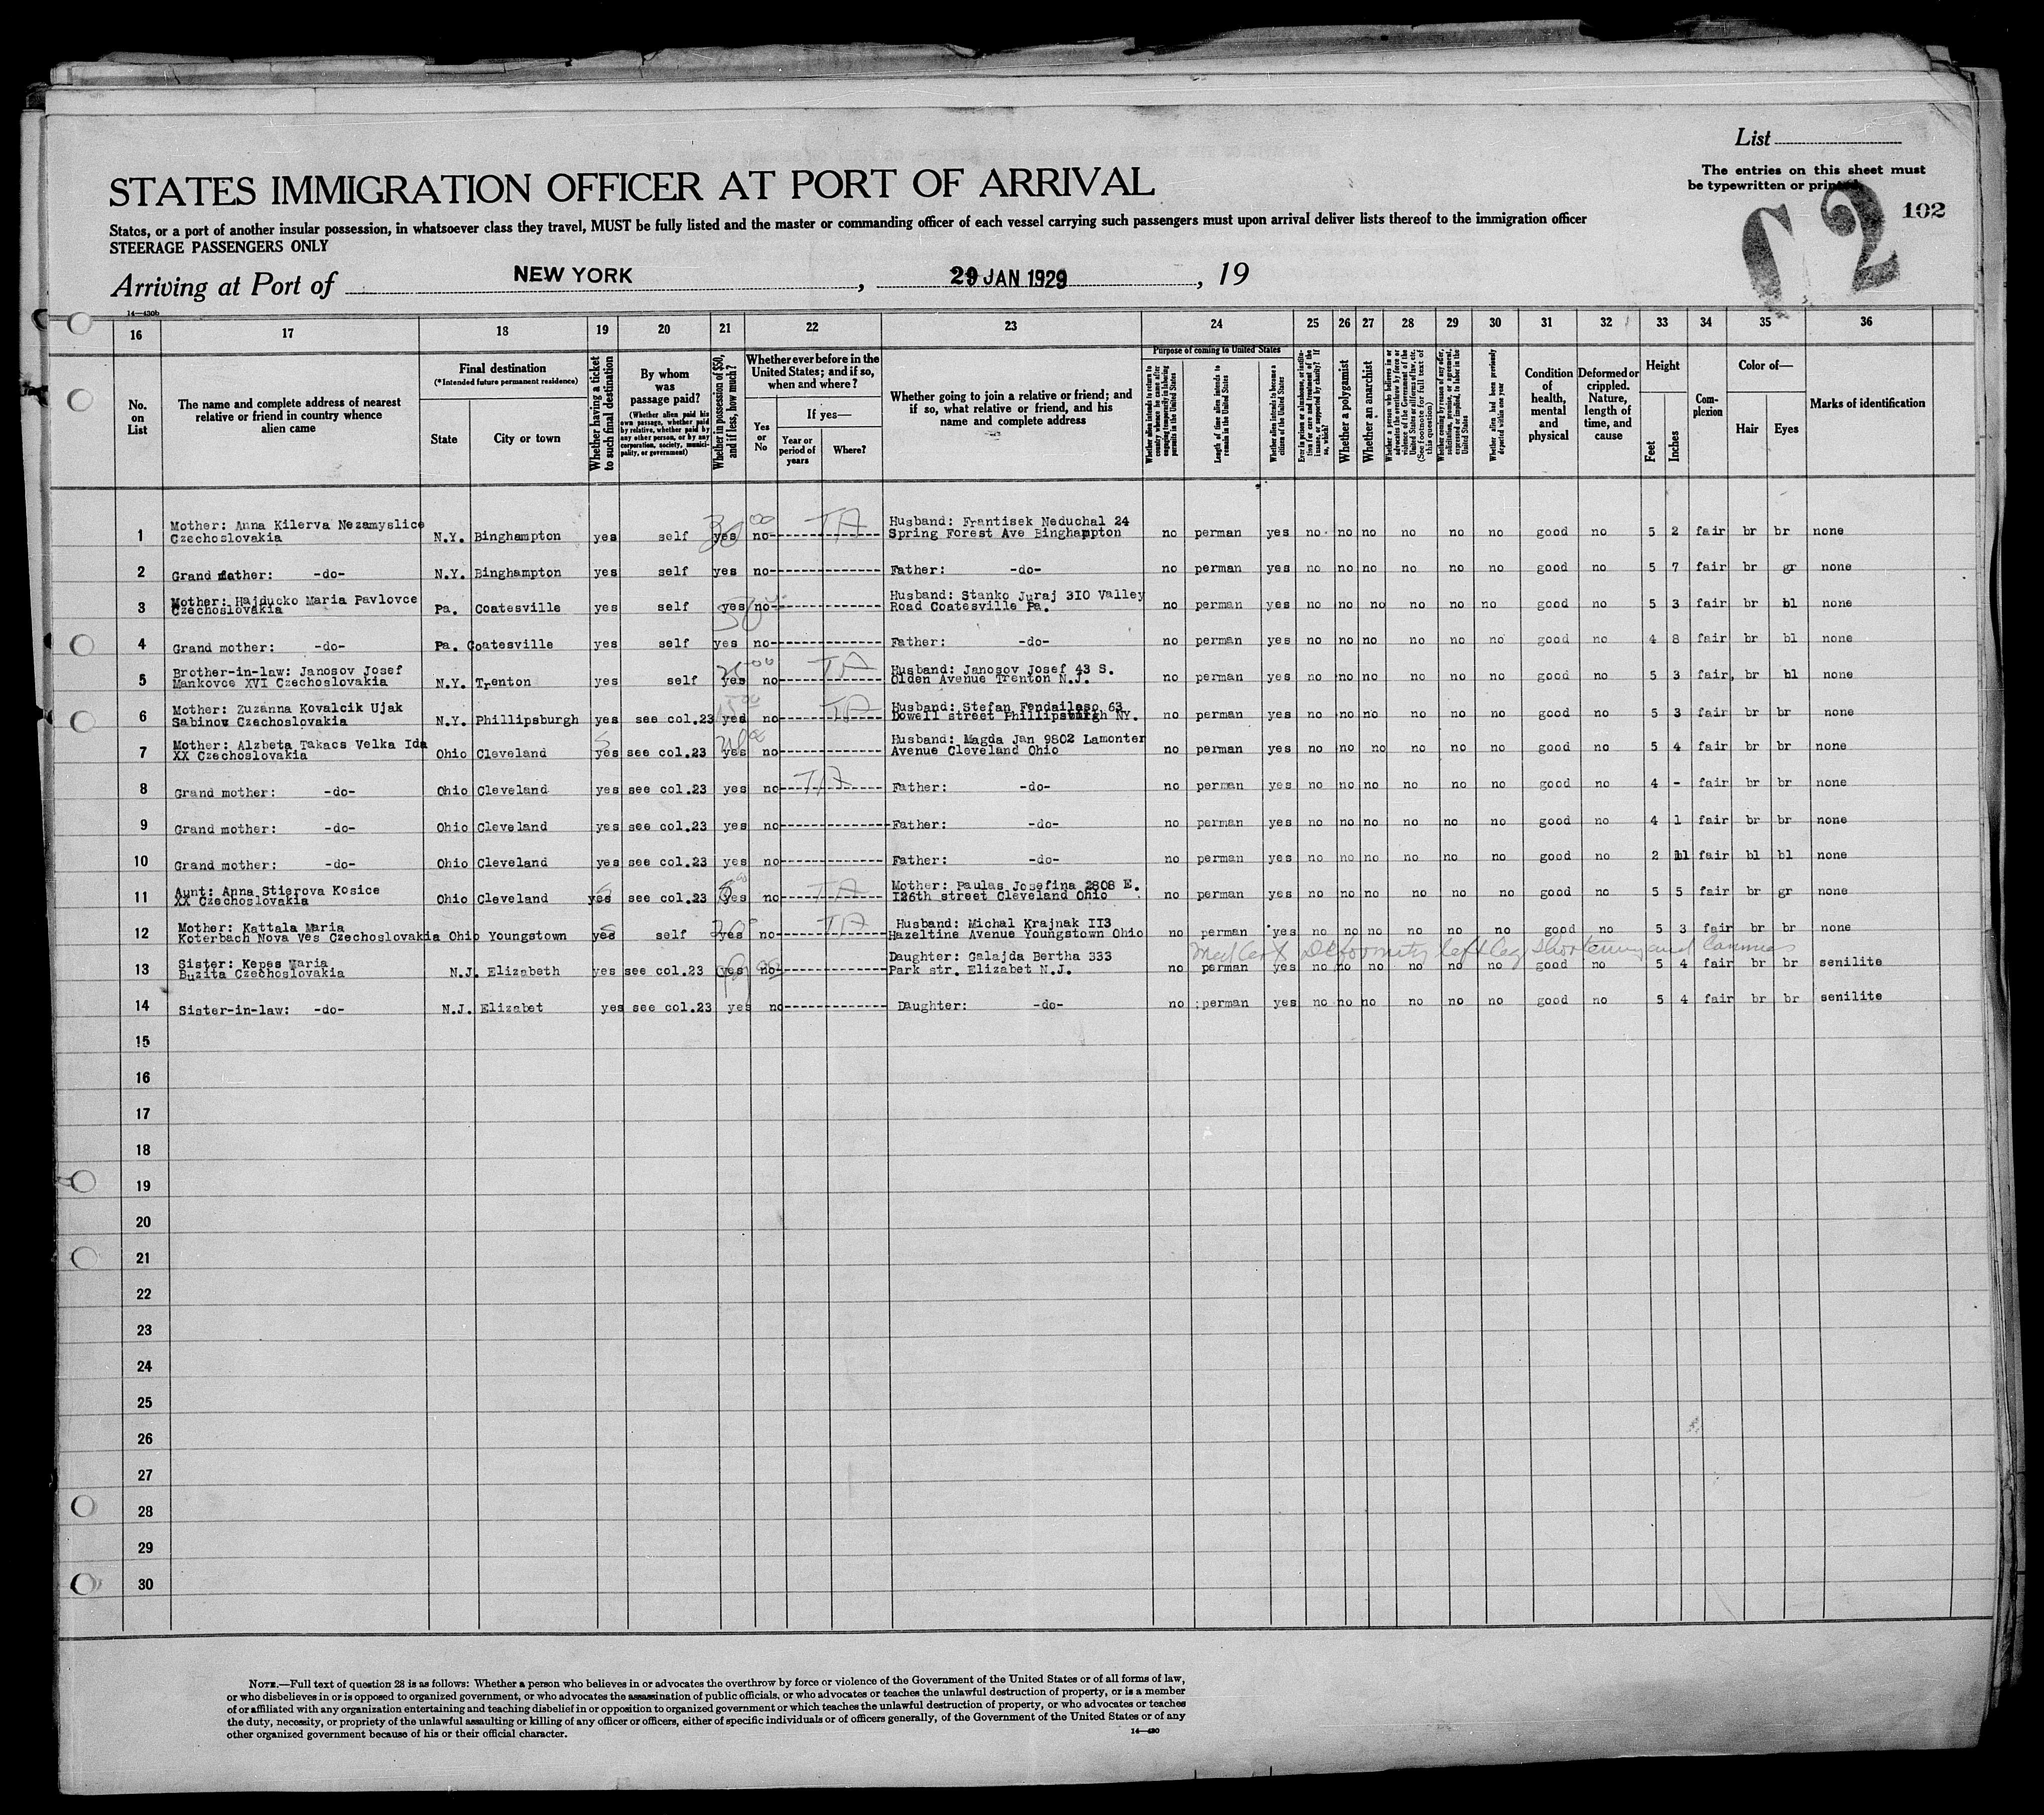 List
The entries on this sheet must
be typewritten or printed
102
STATES IMMIGRATION OFFICER AT PORT OF ARRIVAL
States, or a port of another insular possession, in whatsoever class they travel, MUST be fully listed and the master or commanding officer of each vessel carrying such passengers must upon arrival deliver lists thereof to the immigration officer
STEERAGE PASSENGERS ONLY
Arriving at Port of NEW YORK, 29 JAN 1929, 19
14—430b
16 17 18 19 20 21 22 23 24 25 26 27 28 29 30 31 32 33 34 35 36
No. on List
The name and complete address of nearest relative or friend in country whence alien came
Final destination
(*Intended future permanent residence)
State
City or town
Whether having a ticket to such final destination
By whom was passage paid?
(Whether alien paid his own passage, whether paid by relative, whether paid by any other person, or by any corporation, society, municipality, or government)
Whether in possession of $50, and if less, how much?
Whether ever before in the United States; and if so, when and where?
Yes or No
If yes—
Year or period of years
Where?
Whether going to join a relative or friend; and if so, what relative or friend, and his name and complete address
Purpose of coming to United States
Whether alien intends to return to country whence he came after engaging temporarily in laboring pursuits in the United States
Length of time alien intends to remain in the United States
Whether alien intends to become a citizen of the United States
Ever in prison or almshouse, or institution for care and treatment of the insane, or supported by charity? If so, which?
Whether a polygamist
Whether an anarchist
Whether a person who believes in or advocates the overthrow by force or violence of the Government of the United States or all forms of law, etc. (See footnote for full text of this question)
Whether coming by reason of any offer, solicitation, promise, or agreement, expressed or implied, to labor in the United States
Whether alien had been previously deported within one year
Condition of health, mental and physical
Deformed or crippled. Nature, length of time, and cause
Height
Feet
Inches
Complexion
Color of—
Hair
Eyes
Marks of identification
Mother: Anna Kilerva Nezamyslice 30 00 TA Husband: Frantisek Neduchal 24
1 Czechoslovakia N.Y. Binghampton yes self yes no Spring Forest Ave Binghampton no perman yes no no no no no no good no 5 2 fair br br none
2 Grand mather: -do- N.Y. Binghampton yes self yes no Father: -do- no perman yes no no no no no no good no 5 7 fair br gr none
Mother: Hajducko Maria Pavlovce Husband: Stanko Juraj 310 Valley
3 Czechoslovakia Pa. Coatesville yes self yes no Road Coatesville Pa. no perman yes no no no no no no good no 5 3 fair br bl none
4 Grand mother: -do- Pa. Coatesville yes self yes no Father: -do- no perman yes no no no no no no good no 4 8 fair br bl none
Brother-in-law: Janosov Josef TA Husband: Janosov Josef 43 S.
5 Mankovce XVI Czechoslovakia N.Y. Trenton yes self yes no Olden Avenue Trenton N.J. no perman yes no no no no no no good no 5 3 fair br bl none
Mother: Zuzanna Kovalcik Ujak TA Husband: Stefan Fendaileso 63
6 Sabinov Czechoslovakia N.Y. Phillipsburgh yes see col.23 yes no Dowell street Phillipsburgh NY. no perman yes no no no no no no good no 5 3 fair br br none
Mother: Alzbeta Takacs Velka Ida Husband: Magda Jan 9802 Lamonter
7 XX Czechoslovakia Ohio Cleveland yes see col.23 yes no Avenue Cleveland Ohio no perman yes no no no no no no good no 5 4 fair br br none
8 Grand mother: -do- Ohio Cleveland yes see col.23 yes no TA Father: -do- no perman yes no no no no no no good no 4 - fair br br none
9 Grand mother: -do- Ohio Cleveland yes see col.23 yes no Father: -do- no perman yes no no no no no no good no 4 1 fair br br none
10 Grand mother: -do- Ohio Cleveland yes see col.23 yes no Father: -do- no perman yes no no no no no no good no 2 11 fair bl bl none
Aunt: Anna Stierova Kosice TA Mother: Paulas Josefina 2808 E.
11 XX Czechoslovakia Ohio Cleveland yes see col.23 yes no 126th street Cleveland Ohio no perman yes no no no no no no good no 5 5 fair br gr none
Mother: Kattala Maria TA Husband: Michal Krajnak II3
12 Koterbach Nova Ves Czechoslovakia Ohio Youngstown yes self yes no Hazeltine Avenue Youngstown Ohio no perman yes no no no no no no good no 5 3 fair br br none
Med Cert Deformity left leg shortening and lameness
Sister: Kepes Maria Daughter: Galajda Bertha 333
13 Buzita Czechoslovakia N.J. Elizabeth yes see col.23 yes no Park str. Elizabet N.J. no perman yes no no no no no no good no 5 4 fair br br senilite
14 Sister-in-law: -do- N.J. Elizabet yes see col.23 yes no Daughter: -do- no perman yes no no no no no no good no 5 4 fair br br senilite
15
16
17
18
19
20
21
22
23
24
25
26
27
28
29
30
NOTE.—Full text of question 28 is as follows: Whether a person who believes in or advocates the overthrow by force or violence of the Government of the United States or of all forms of law,
or who disbelieves in or is opposed to organized government, or who advocates the assassination of public officials, or who advocates or teaches the unlawful destruction of property, or is a member
of or affiliated with any organization entertaining and teaching disbelief in or opposition to organized government or which teaches the unlawful destruction of property, or who advocates or teaches
the duty, necessity, or propriety of the unlawful assaulting or killing of any officer or officers, either of specific individuals or of officers generally, of the Government of the United States or of any
other organized government because of his or their official character.
14—430